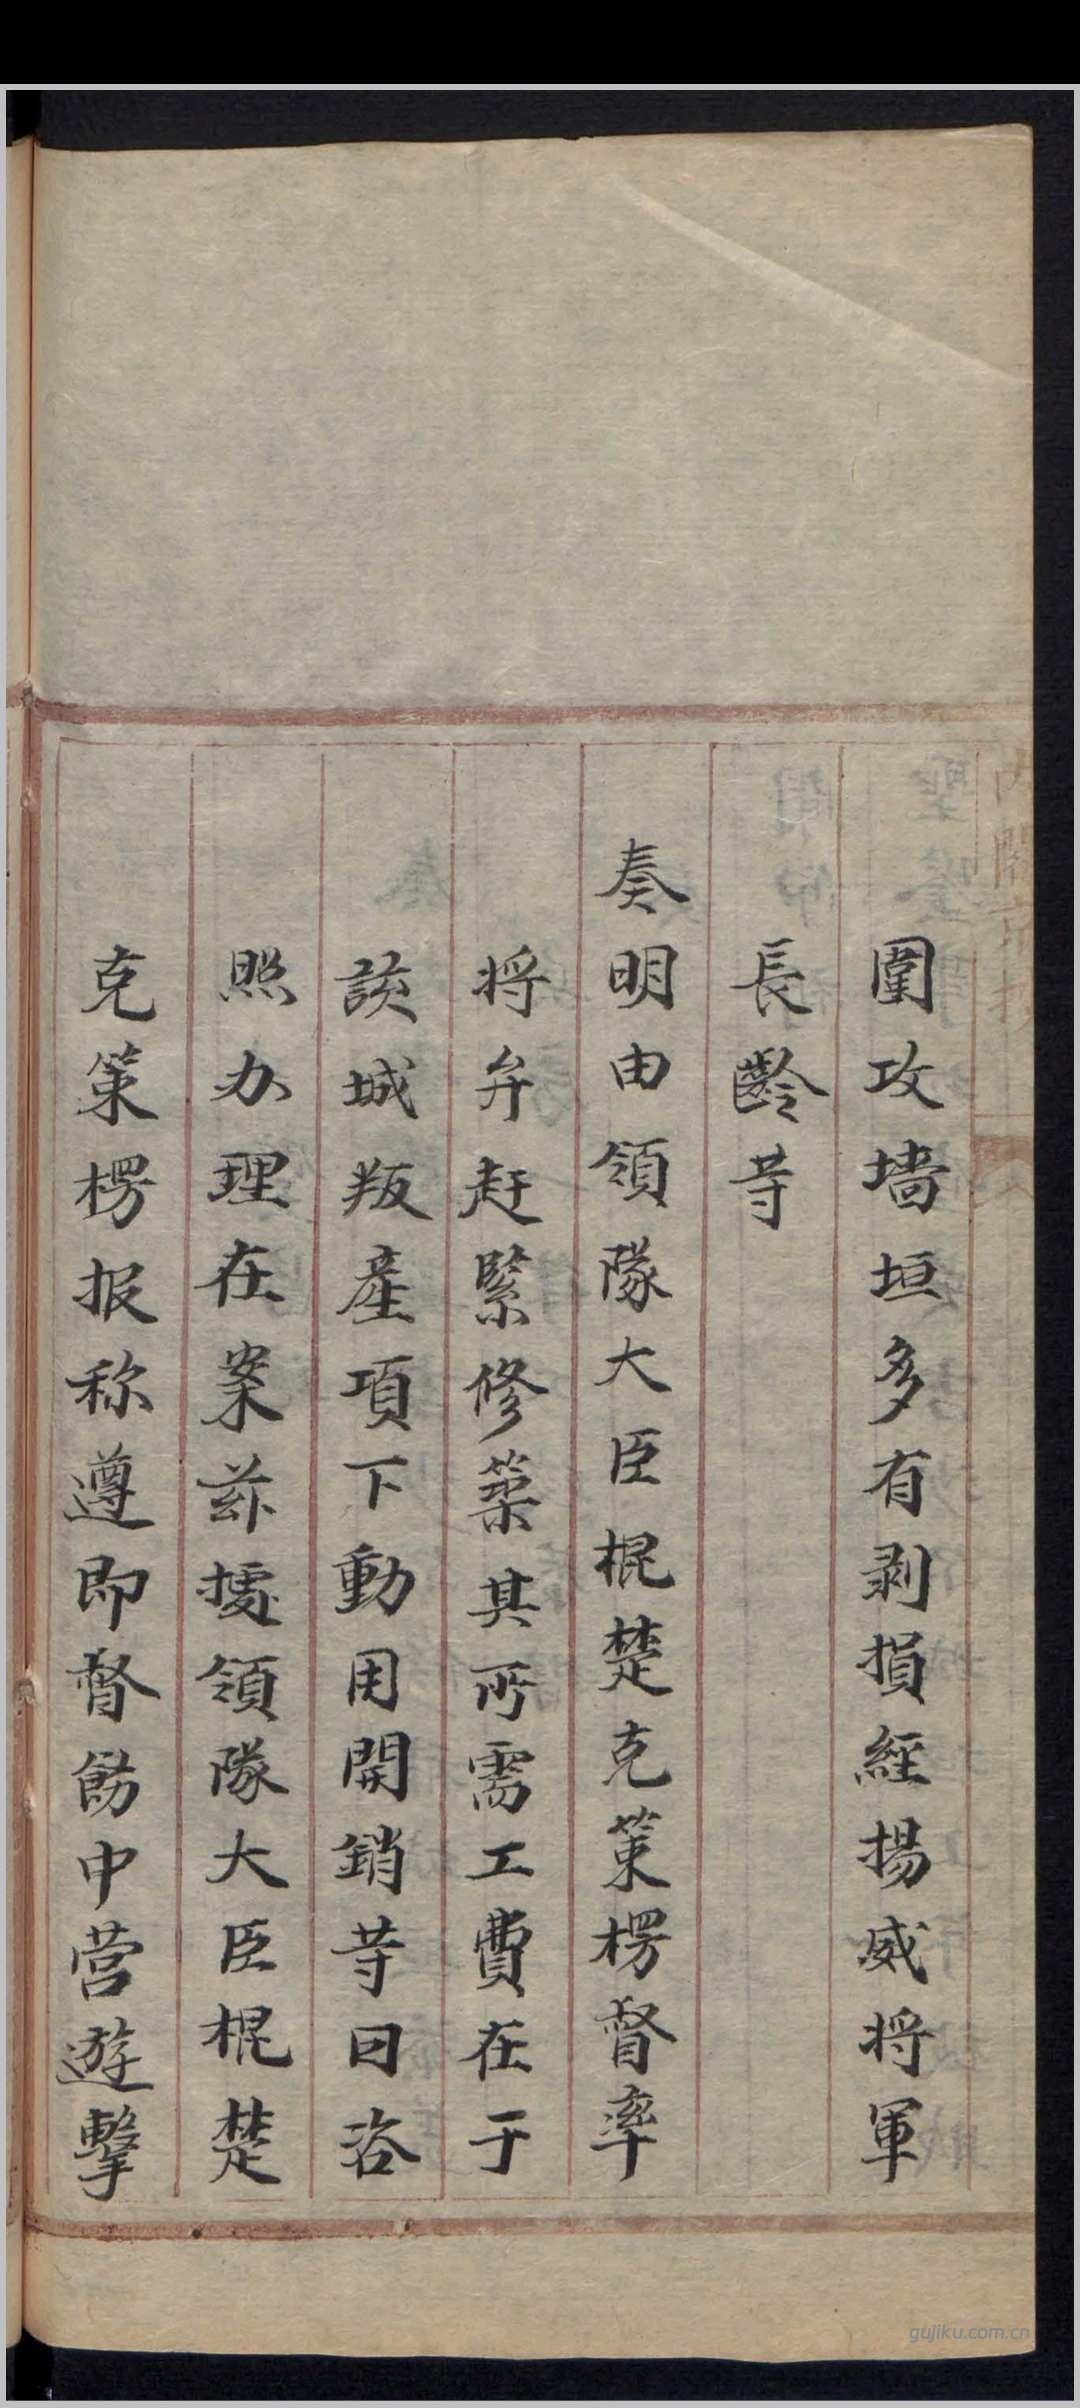 圍攻墻垣多有剥損經揚威將軍
長齡䓁
奏明由領隊大臣棍楚克策楞督率
將弁赶緊修築其所需工費在于
該城叛產項下動用開銷䓁因咨
照办理在案茲據領隊大臣棍楚
克策楞报称遵即督飭中营遊擊
gujiku.com.cn